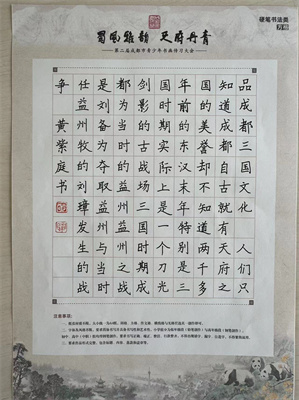 硬笔书法类
蜀风雅韵 天府丹青
第二届成都市青少年书画传习大会
品成都三国文化 人们只
知道成都自古就有天府之
国的美誉却不知道两千多
年前的东汉末年特别是三
国时期实际上是一个刀光
剑影的古战场三国时期成
都为当时的益州益州之战
是刘备为夺取益州与当时
任益州牧的刘璋发生的战
争 黄紫庭书
注意事项：